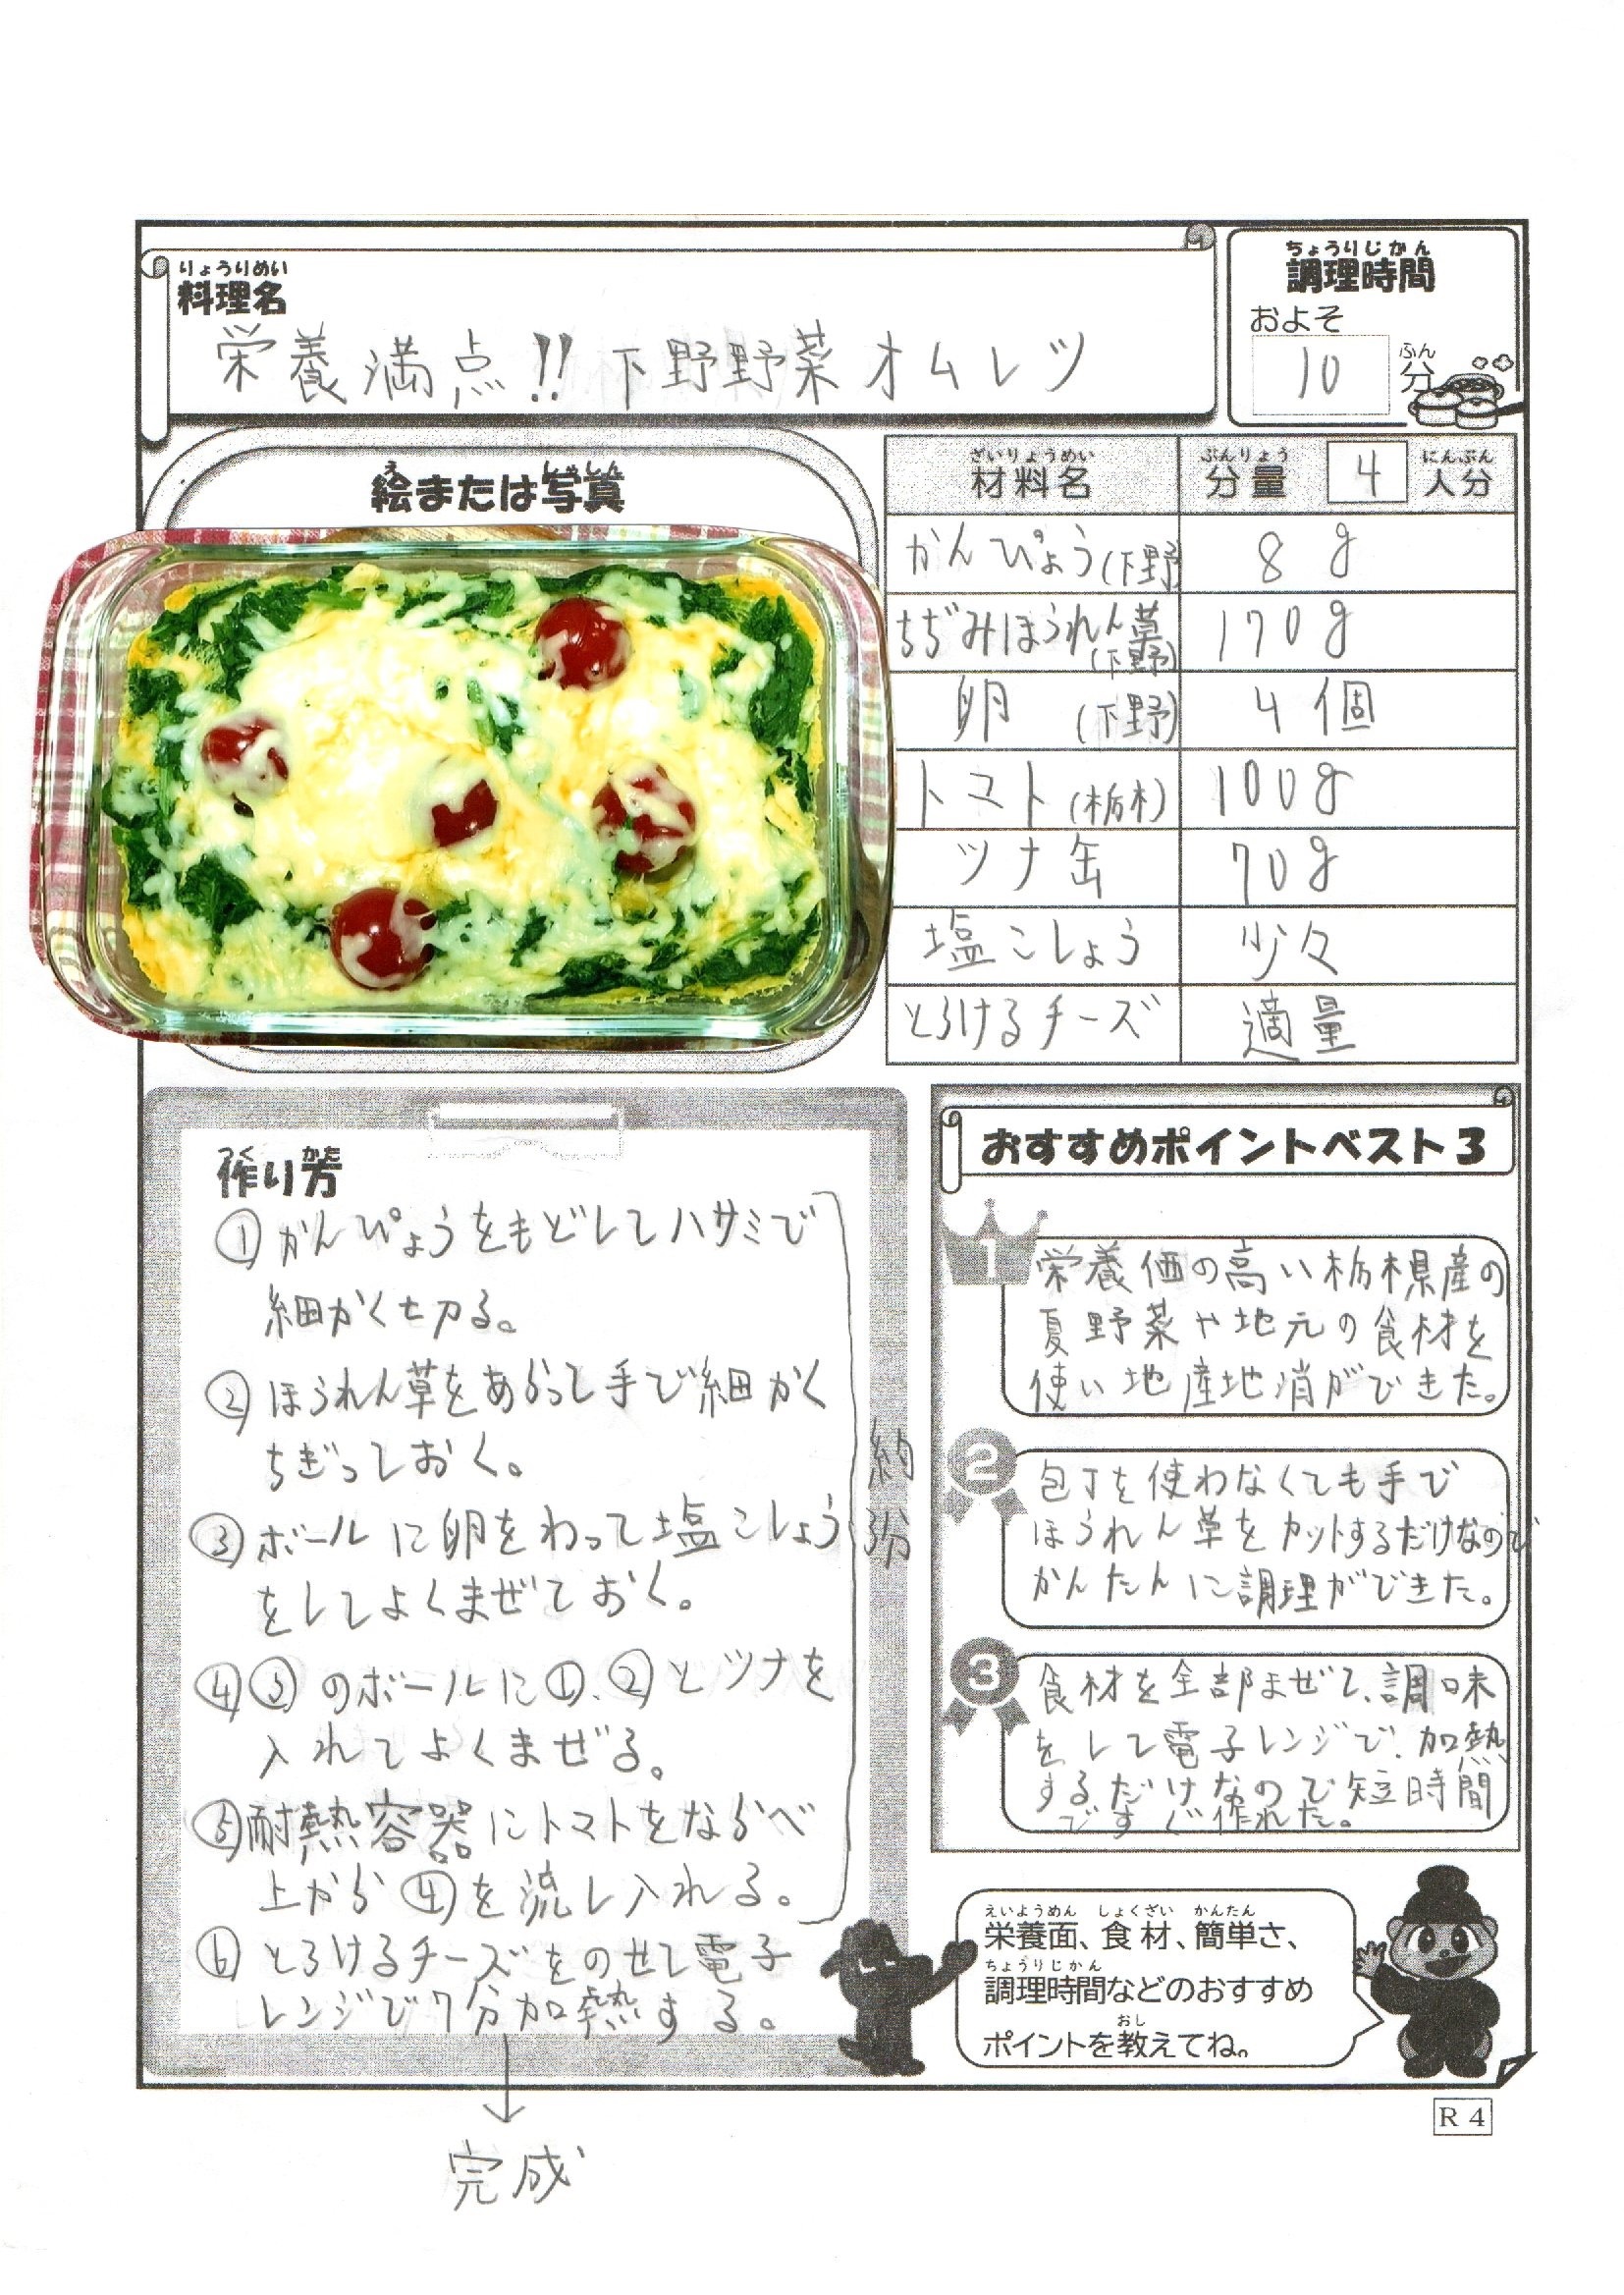 りょうりめい
料理名
栄養満点!! 下野野菜オムレツ
ちょうりじかん
調理時間
およそ
10 分
ふん
え しゃしん
絵または写真
ざいりょうめい ぶんりょう にんぶん
材料名 分量 4 人分
かんぴょう(下野) 8g
ちぢみほうれん草(下野) 170g
卵 (下野) 4個
トマト(栃木) 100g
ツナ缶 70g
塩こしょう 少々
とろけるチーズ 適量
つく かた
作り方
① かんぴょうをもどしてハサミで
細かく切る。
② ほうれん草をあらって手で細かく
ちぎっておく。
③ ボールに卵をわって塩こしょう
をしてよくまぜておく。
④ ③のボールに①、②とツナを
入れてよくまぜる。
⑤ 耐熱容器にトマトをならべ
上から④を流し入れる。
約
3分
⑥ とろけるチーズをのせて電子
レンジで7分加熱する。
完成
おすすめポイントベスト3
1
栄養価の高い栃木県産の
夏野菜や地元の食材を
使い地産地消ができた。
2
包丁を使わなくても手で
ほうれん草をカットするだけなので
かんたんに調理ができた。
3
食材を全部まぜて、調味
をして電子レンジで、加熱
するだけなので短時間
ですぐ作れた。
えいようめん しょくざい かんたん
栄養面、食材、簡単さ、
ちょうりじかん
調理時間などのおすすめ
おし
ポイントを教えてね。
R4